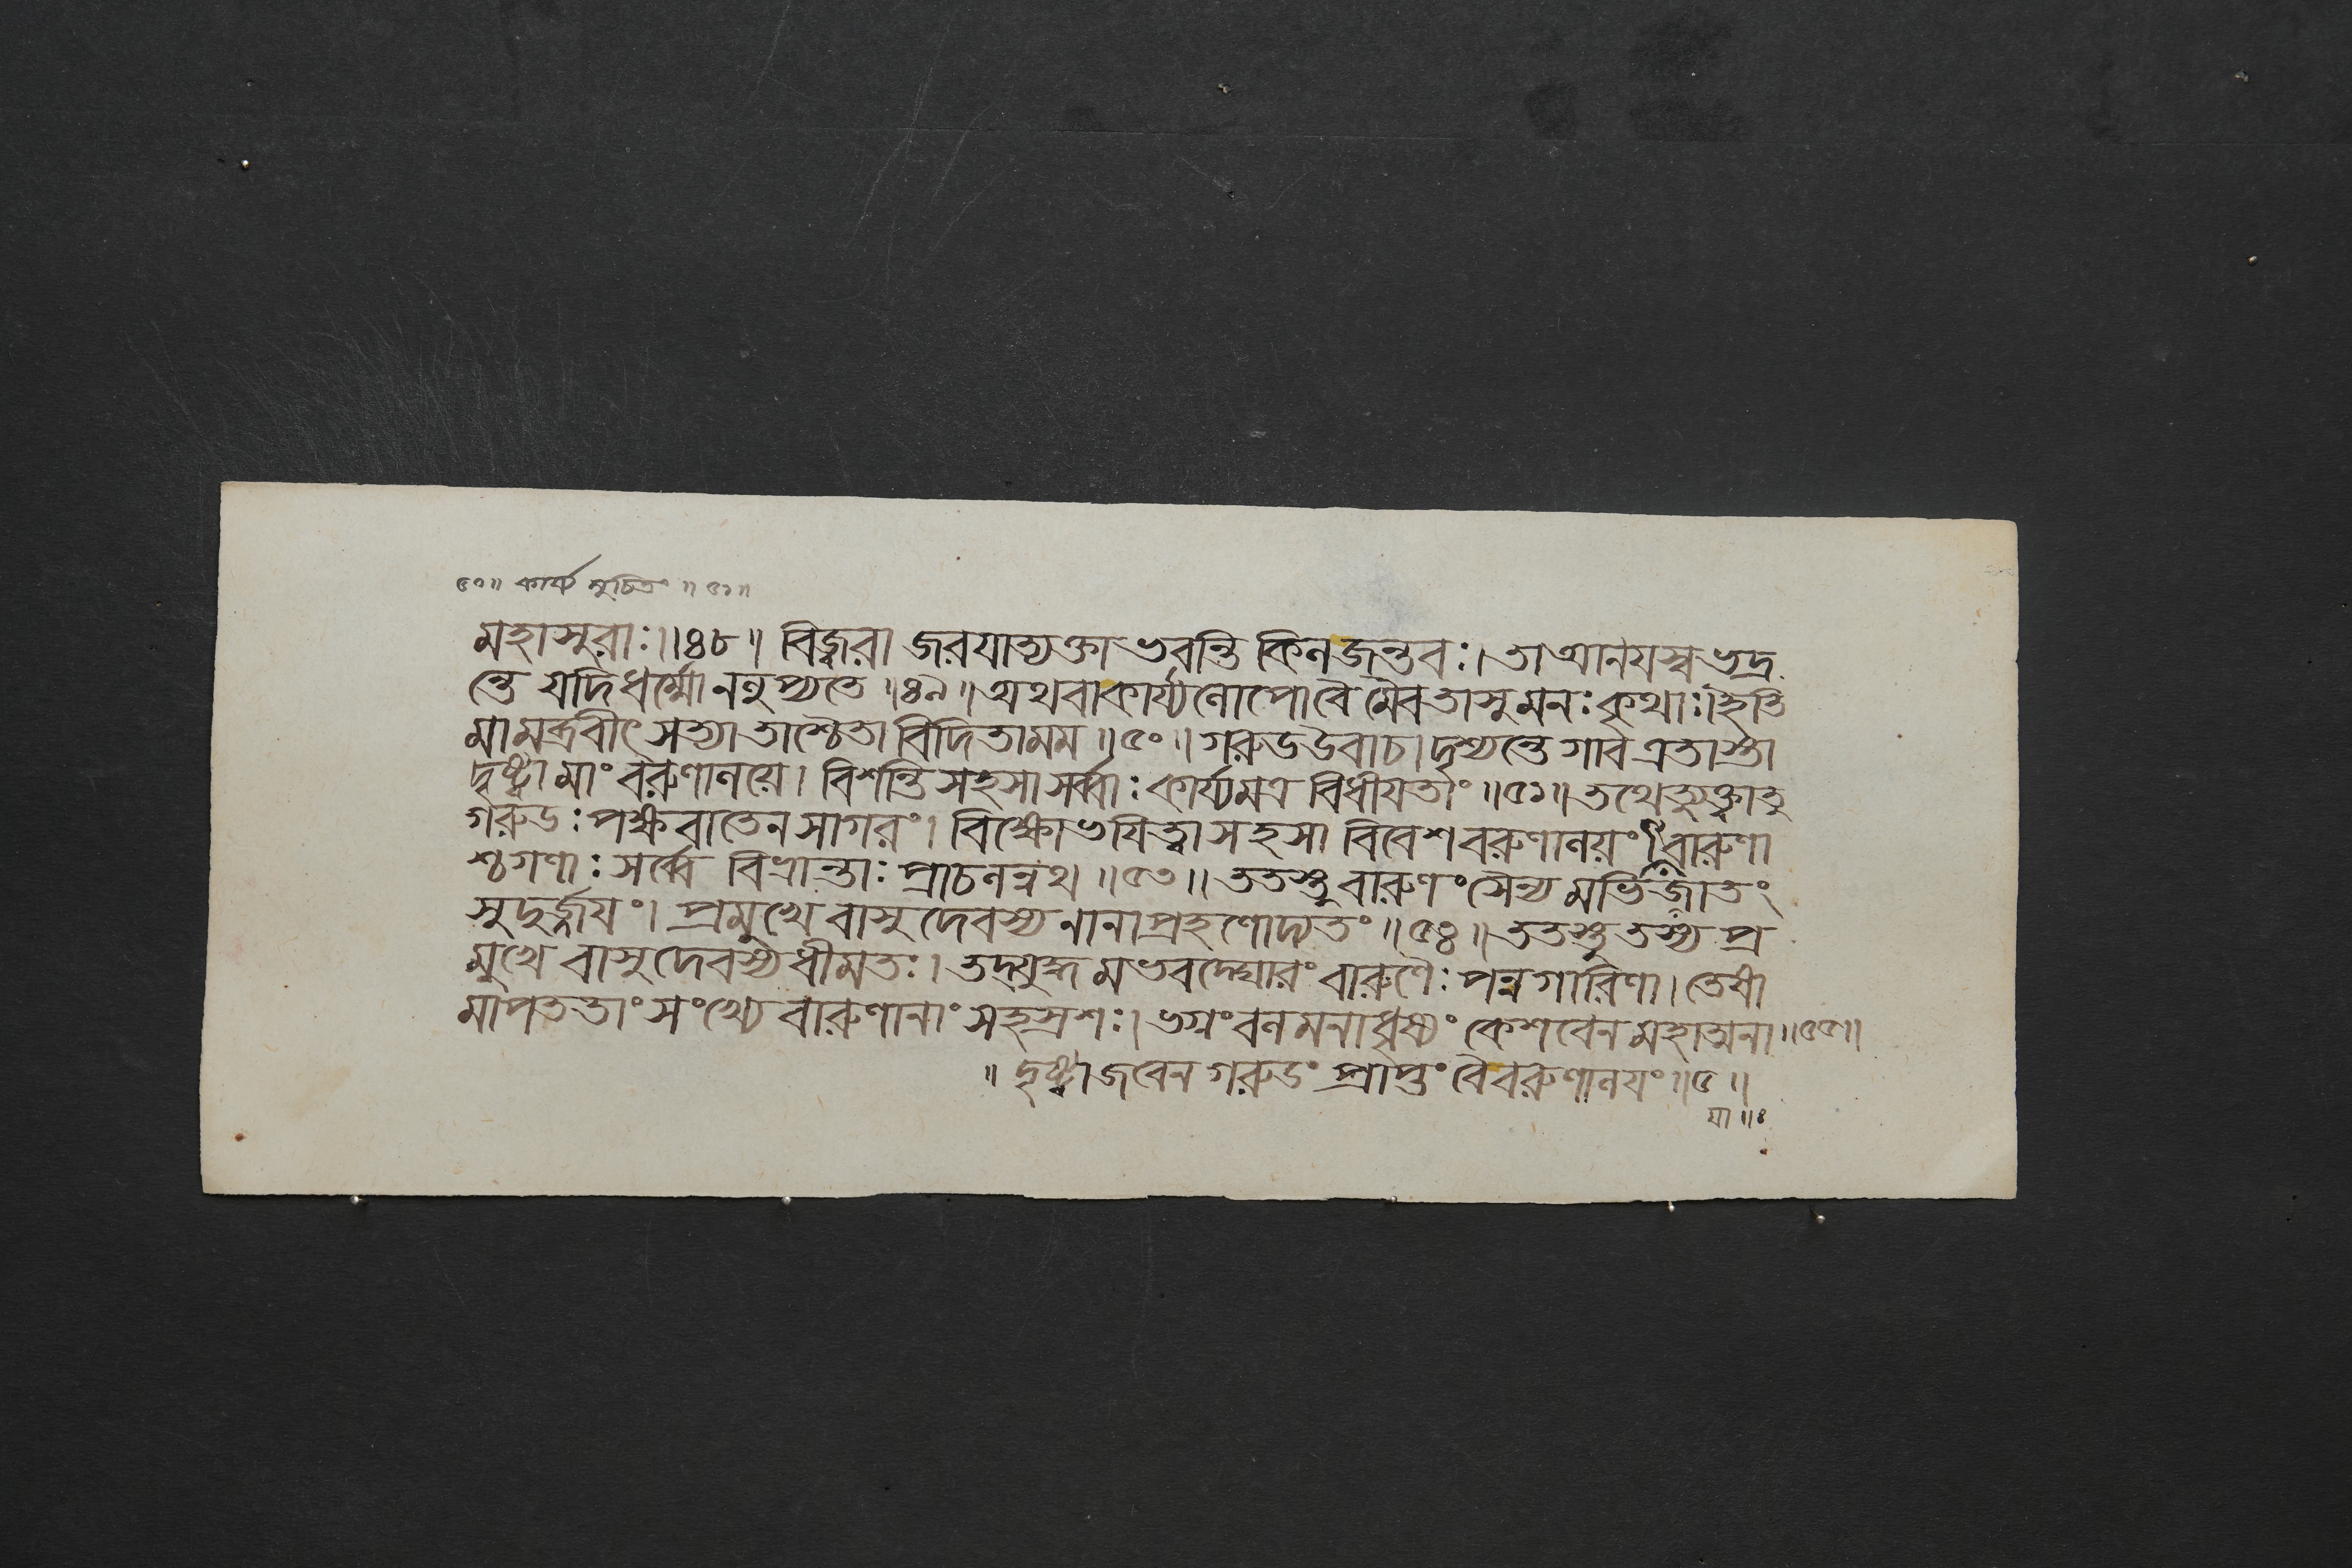 ৫০॥ কার্য্য নুচিতং ॥ ৫১॥
মহাসুরাঃ॥৪৮॥ বিজ্বরা জরযাত্যক্তা ভবন্তি কিনজন্তবঃ। তা আনযস্ব ভদ্র
ন্তে যদিধর্ম্মো ননুপ্যতে ॥৪৯॥ অথবাকার্য্যনোপোবৈ মৈবতাসু মনঃ কৃথাঃ। ইতি
মামব্রবীৎ সত্যা তাশ্চৈতা বিদিতামম ॥৫০॥ গরুডউবাচ। দৃশ্যন্তে গাব এতাস্তা
দৃষ্ট্বা মাং বরুণানয়ে। বিশন্তি সহসা সর্ব্বাঃ কার্য্যমত্র বিধীযতাং ॥৫১॥ তথেত্যুক্ত্বাতু
গরুডঃ পক্ষবাতেন সাগরং। বিক্ষোভযিত্বা সহসা বিবেশ বরুণানয়ং॥ বারুণা
শ্চগণাঃ সর্ব্বে বিভ্রান্তাঃ প্রাচনন্নথ ॥৫৩॥ ততস্তু বারুণং সৈন্য মভিজাতং
সুদুর্জ্জযং। প্রমুখে বাসুদেবস্য নানাপ্রহণোদ্যতং ॥৫৪॥ ততস্তু তস্য প্র
মুখে বাসুদেবস্য ধীমতঃ। তদ্যুদ্ধ মভবদ্ঘোরং বারুণৈঃ পন্নগারিণা। তেষা
মাপততাং সংখ্যে বারুণানাং সহস্রশঃ। ভগ্নং বনমনাধৃষ্যং কেশবেন মহাত্মনা॥৫৫॥
॥ দৃষ্ট্বা জবেন গরুডং প্রাপ্তং বৈবরুণানযং ॥৫॥